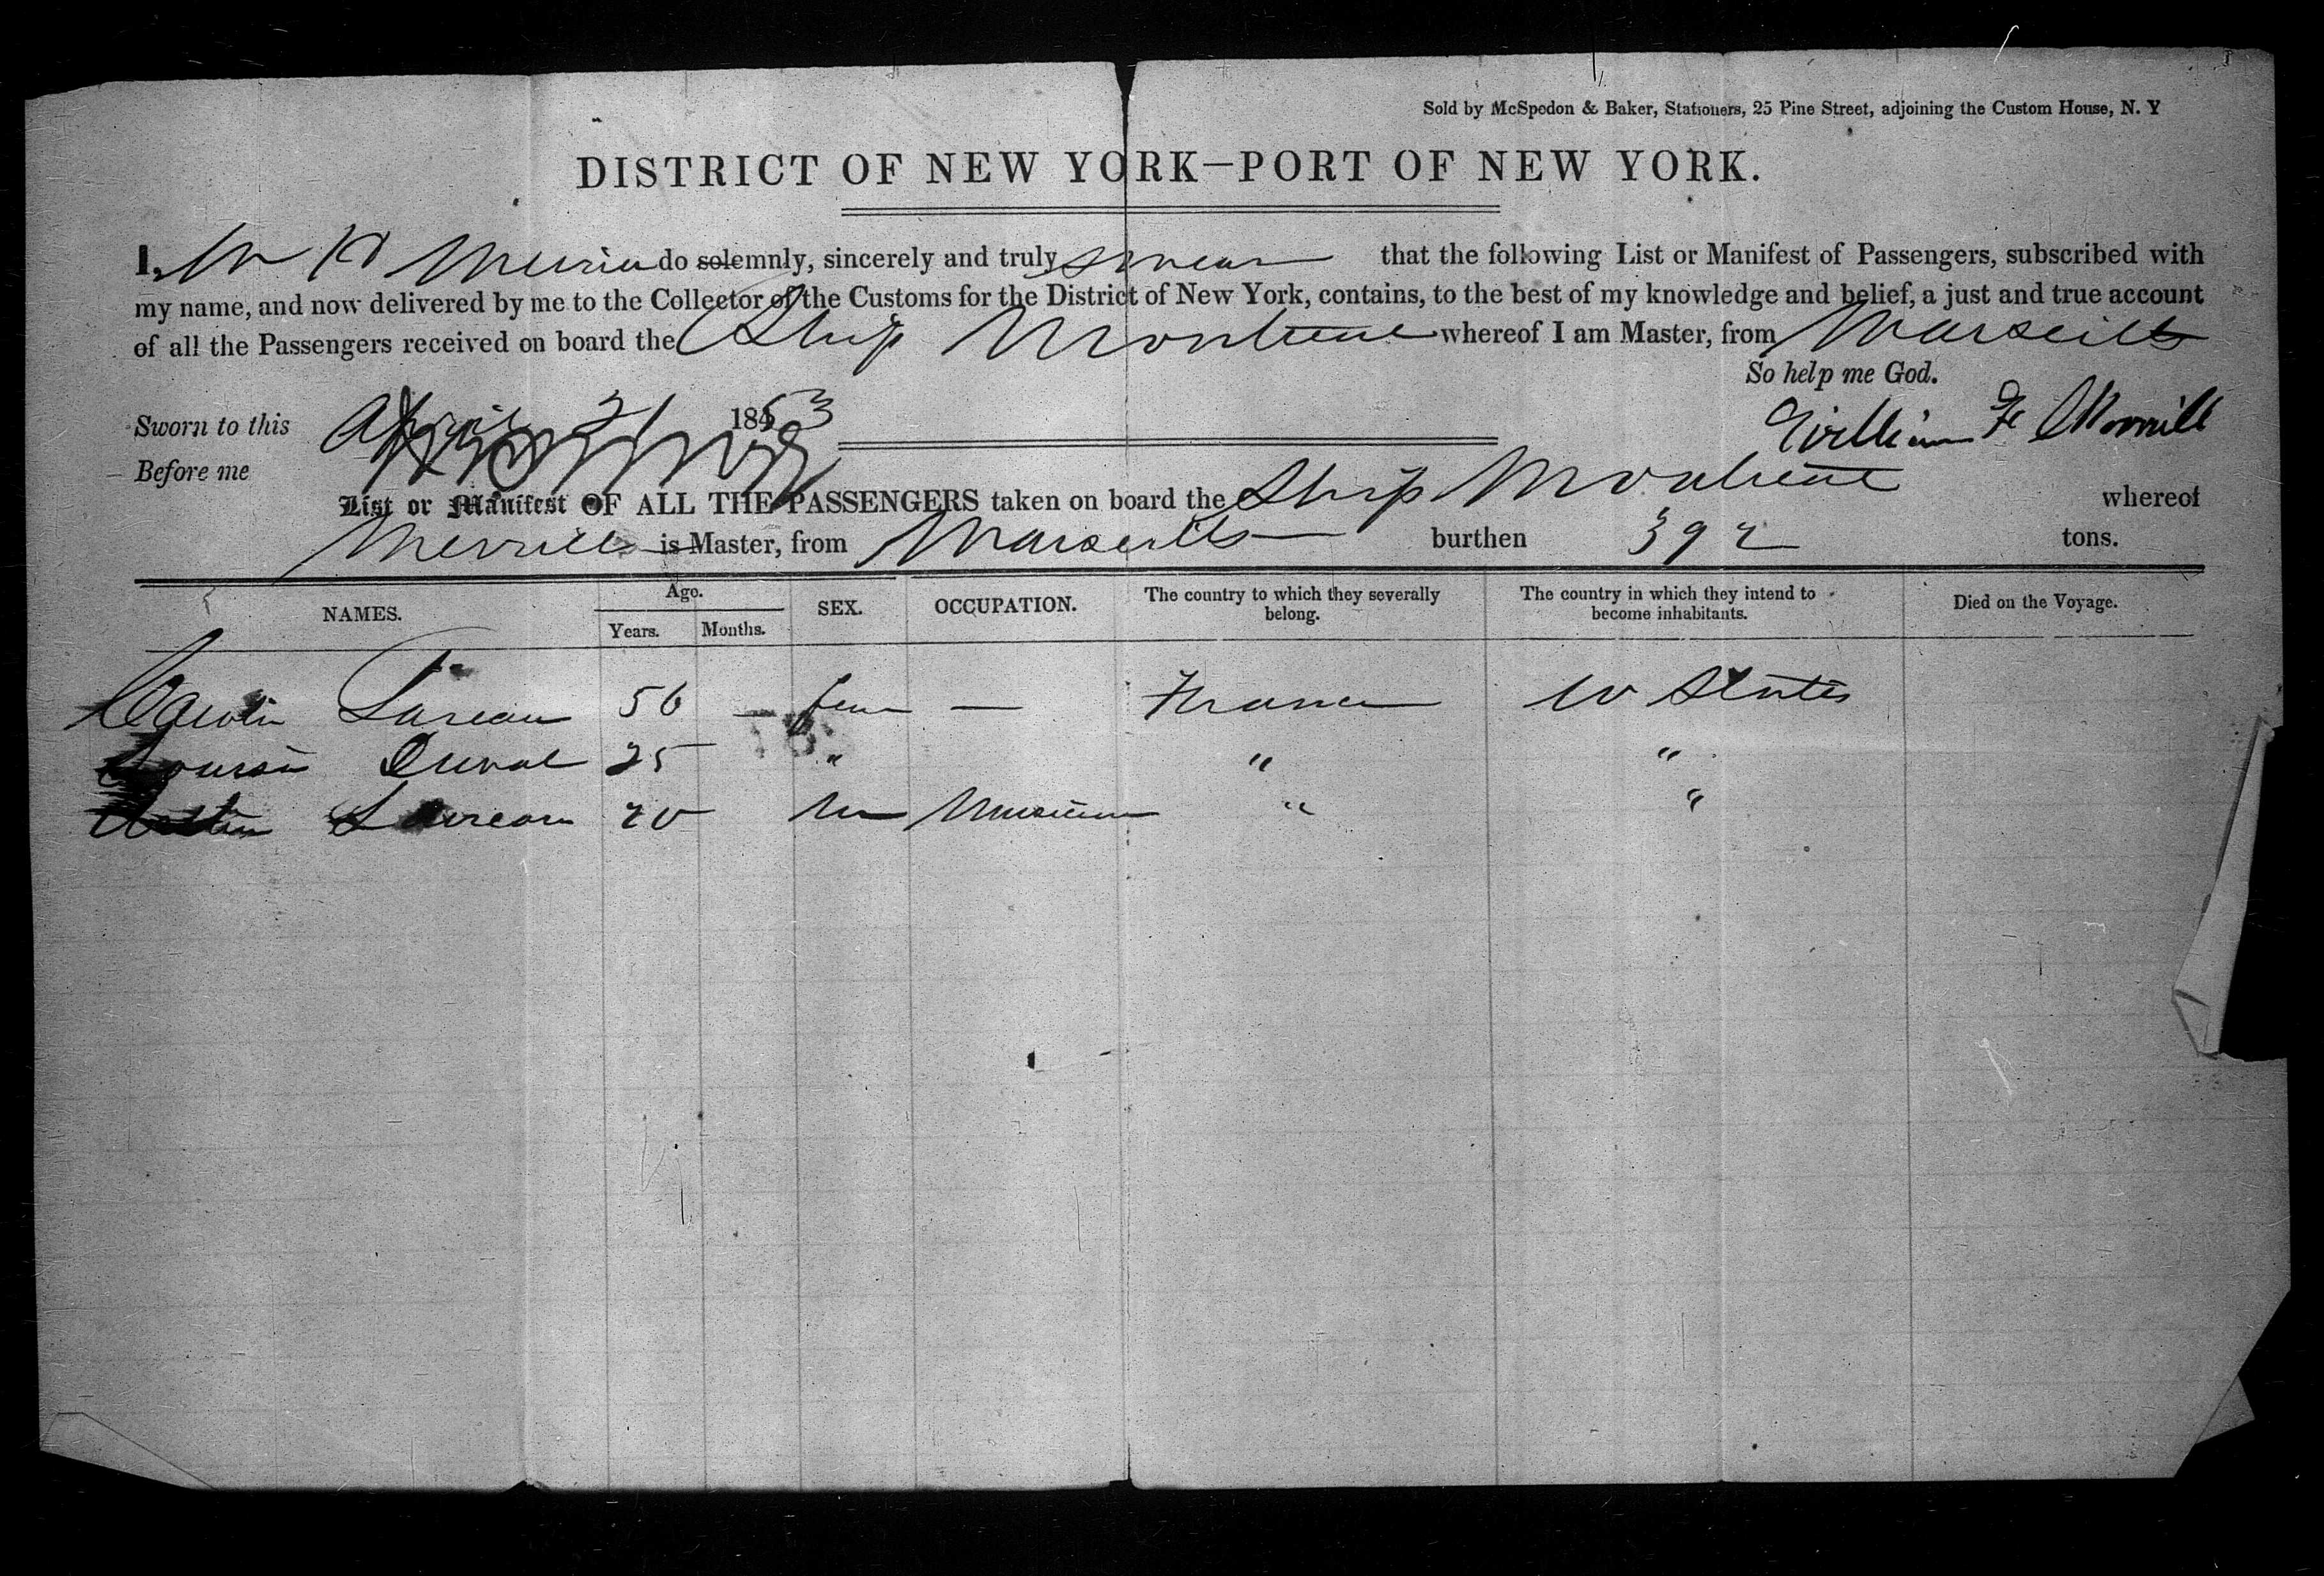 Sold by McSpedon & Baker, Stationers, 25 Pine Street, adjoining the Custom House, N. Y
DISTRICT OF NEW YORK—PORT OF NEW YORK.
I, Merrill do solemnly, sincerely and truly swear that the following List or Manifest of Passengers, subscribed with
my name, and now delivered by me to the Collector of the Customs for the District of New York, contains, to the best of my knowledge and belief, a just and true account
of all the Passengers received on board the Ship whereof I am Master, from Marseills
So help me God.
Sworn to this April 21 1853
William F Merrill
Before me
List or Manifest OF ALL THE PASSENGERS taken on board the Ship whereof
Merrill is Master, from Marseills burthen 392 tons.
NAMES. Age. Years. Months. SEX. OCCUPATION. The country to which they severally belong. The country in which they intend to become inhabitants. Died on the Voyage.
56 — fem — France U States
Duval 25 " " "
20 m Musician " "